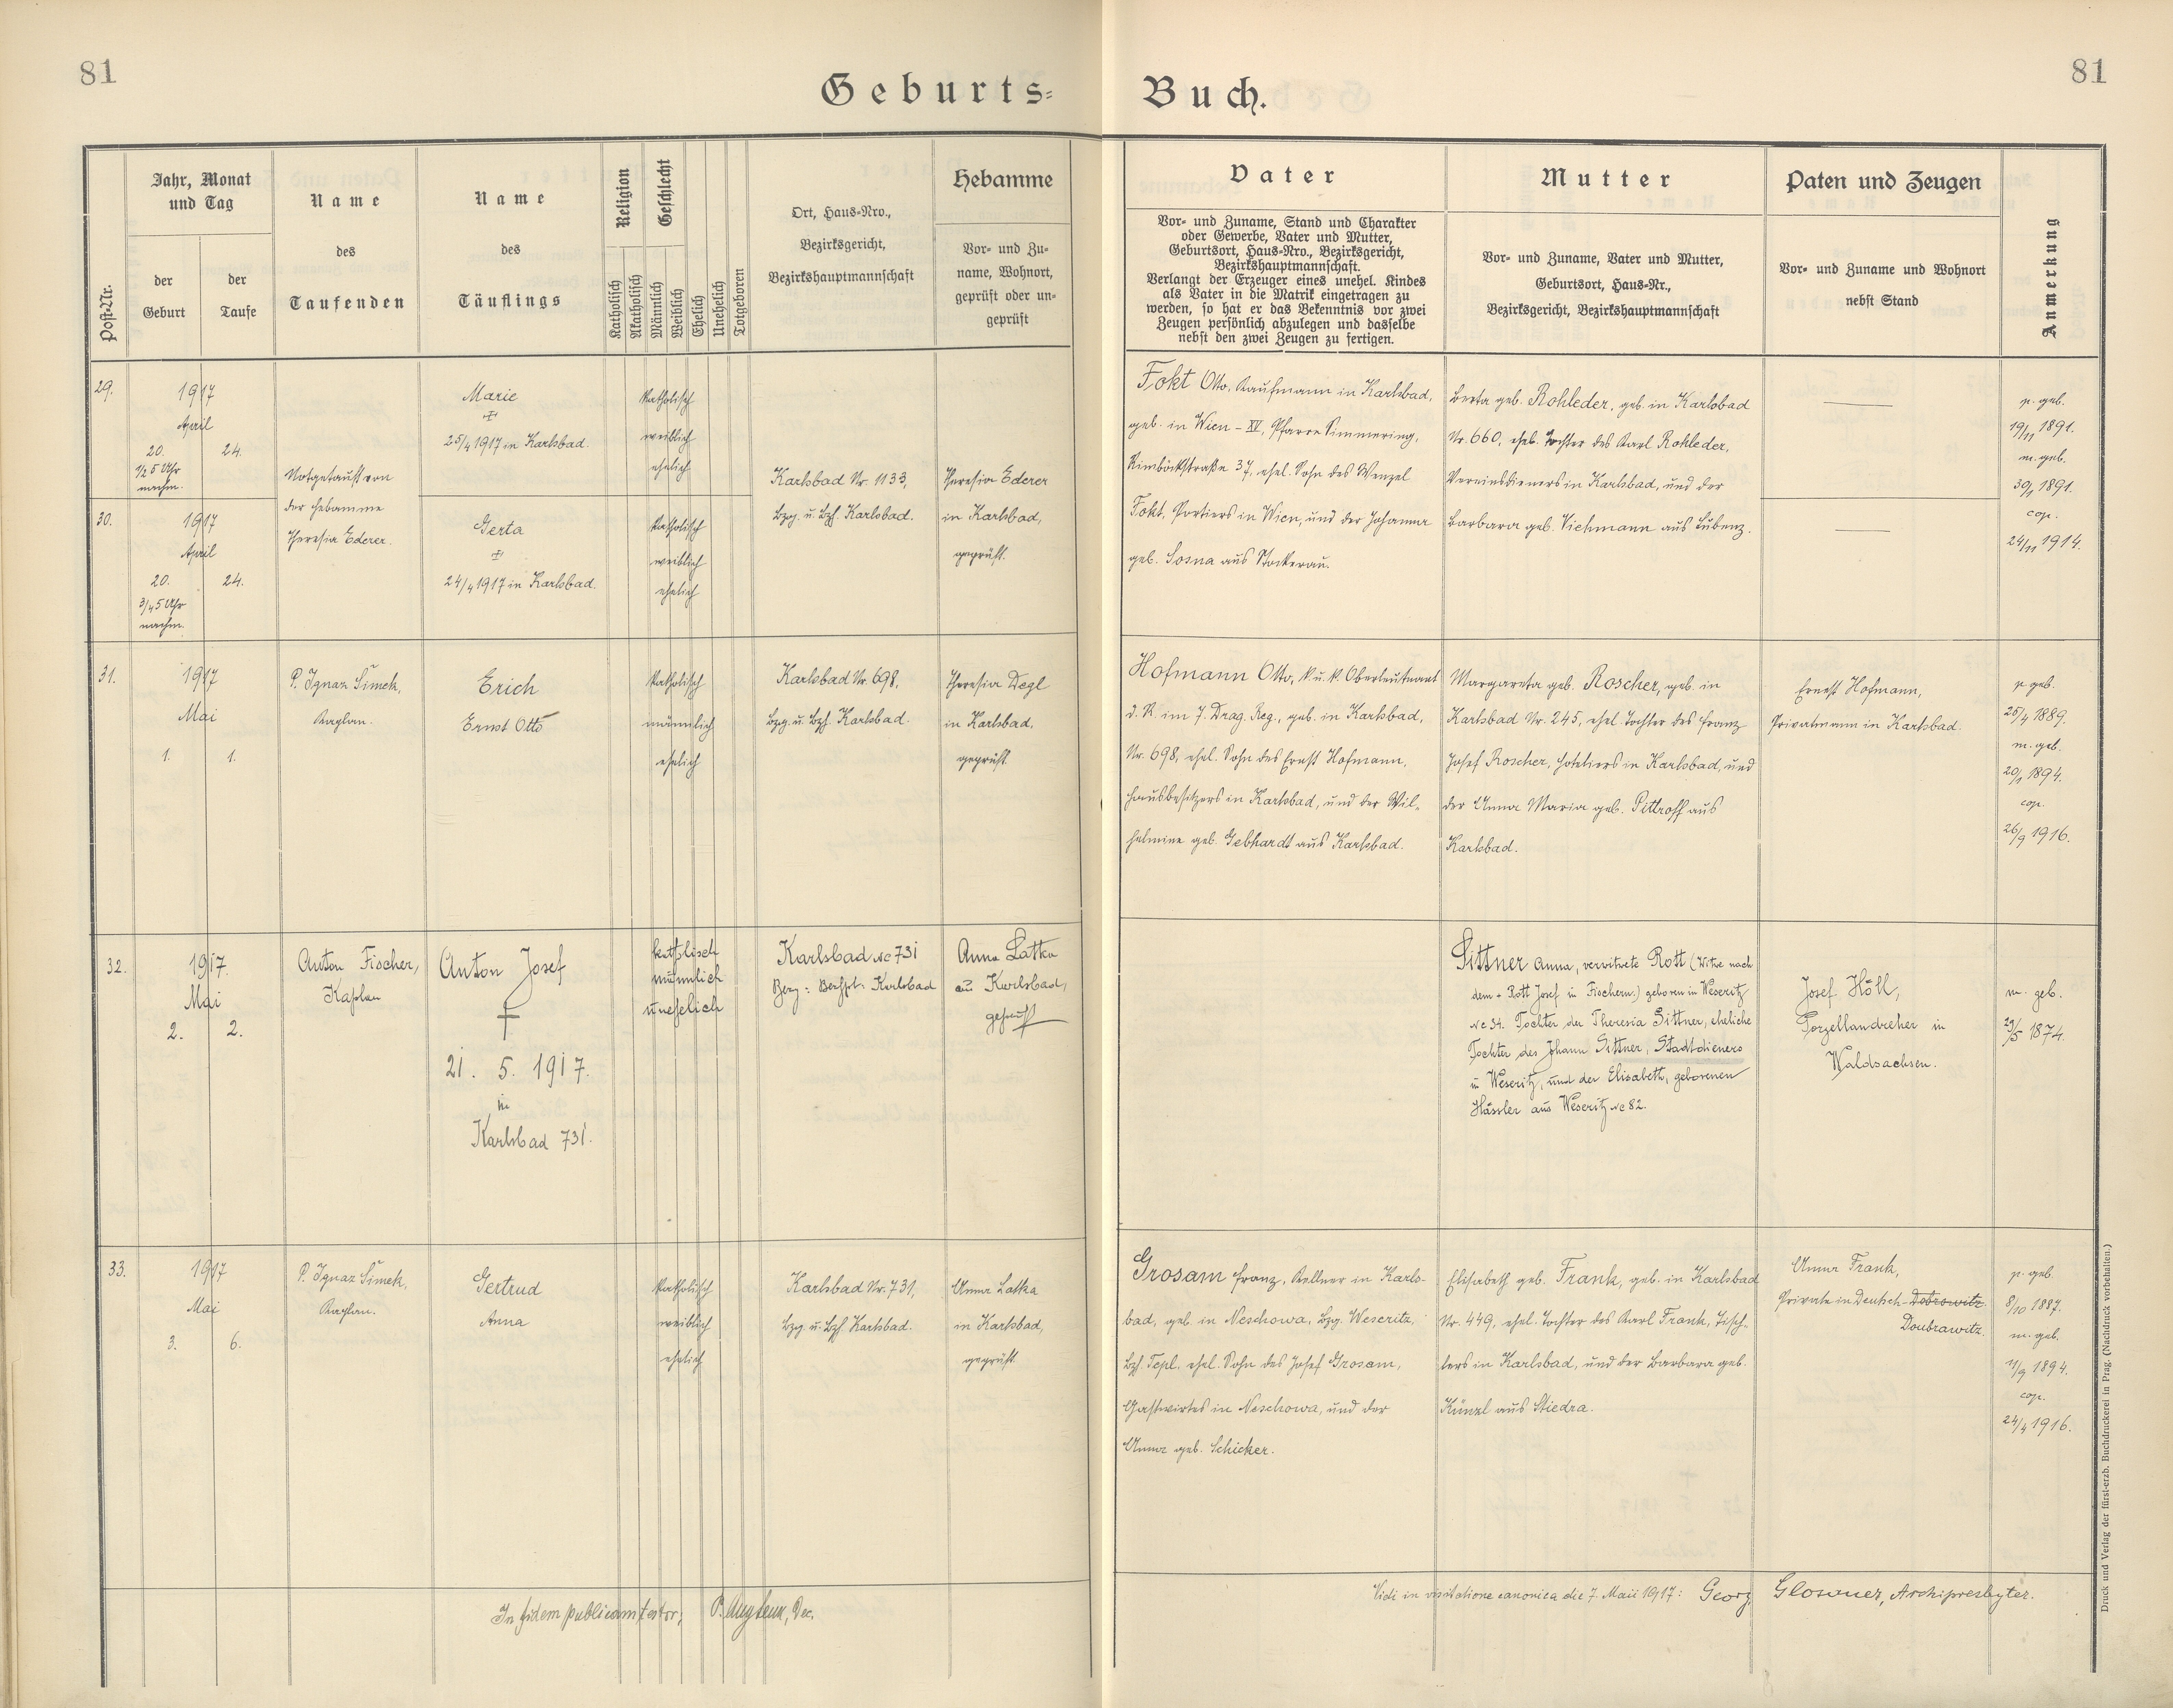 81
81
Geburts-
Buch.
Post-Nr.
Jahr, Monat
und Tag
der
Geburt
der
Taufe
Name
des
Taufenden
Name
des
Täuflings
Religion
Katholisch
Akatholisch
Geschlecht
Männlich
Weiblich
Ehelich
Unehelich
Totgeboren
Ort, Haus-Nro.,
Bezirksgericht,
Bezirkshauptmannschaft
Hebamme
Vor- und Zu-
name, Wohnort,
geprüft oder un-
geprüft
Vater
Vor- und Zuname, Stand und Charakter
oder Gewerbe, Vater und Mutter,
Geburtsort, Haus-Nro., Bezirksgericht,
Bezirkshauptmannschaft.
Verlangt der Erzeuger eines unehel. Kindes
als Vater in die Matrik eingetragen zu
werden, so hat er das Bekenntnis vor zwei
Zeugen persönlich abzulegen und dasselbe
nebst den zwei Zeugen zu fertigen.
Mutter
Vor- und Zuname, Vater und Mutter,
Geburtsort, Haus-Nr.,
Bezirksgericht, Bezirkshauptmannschaft
Paten und Zeugen
Vor- und Zuname und Wohnort
nebst Stand
Anmerkung
29.
1917
April
20.
24.
1/2 5 Uhr
nachm.
30.
1917
April
20.
24.
3/4 5 Uhr
nachm.
Notgetauft von
der Hebamme
Theresia Ederer.
Marie
25/4 1917 in Karlsbad.
Gerta
24/4 1917 in Karlsbad.
katholisch
weiblich
ehelich
katholisch
weiblich
ehelich
Karlsbad Nr. 1133,
Bzg. u. Bzh. Karlsbad.
Theresia Ederer
in Karlsbad,
geprüft.
Fokt Otto, Kaufmann in Karlsbad,
geb. in Wien - XI, Pfarre Simmering,
Rimböckstraße 37, ehel. Sohn des Wenzel
Fokt, Portiers in Wien, und der Johanna
geb. Sosna aus Stockerau.
Berta geb. Rohleder, geb. in Karlsbad
Nr. 660, ehel. Tochter des Karl Rohleder,
Vereinsdieners in Karlsbad, und der
Barbara geb. Viehmann aus Lubenz.
p. geb.
19/11 1891.
m. geb.
30/1 1891.
cop.
24/11 1914.
31.
1917
Mai
1.
1.
P. Ignaz Šimek,
Kaplan.
Erich
Ernst Otto
katholisch
männlich
ehelich
Karlsbad Nr. 698,
Bzg. u. Bzh. Karlsbad.
Theresia Degl
in Karlsbad,
geprüft.
Hofmann Otto, k. u. k. Oberleutnant
d. R. im 7. Drag. Reg., geb. in Karlsbad,
Nr. 698, ehel. Sohn des Ernst Hofmann,
Hausbesitzers in Karlsbad, und der Wil-
helmine geb. Gebhardt aus Karlsbad.
Margareta geb. Roscher, geb. in
Karlsbad Nr. 245, ehel. Tochter des Franz
Josef Roscher, Hoteliers in Karlsbad, und
der Anna Maria geb. Pittroff aus
Karlsbad.
Ernst Hofmann,
Privatmann in Karlsbad.
p. geb.
25/4 1889.
m. geb.
20/1 1894.
cop.
26/9 1916.
32.
1917.
Mai
2.
2.
Anton Fischer,
Kaplan
Anton Josef
†
21. 5. 1917.
in
Karlsbad 731.
katholisch
männlich
unehelich
Karlsbad No 731
Bezg: Bezhpt: Karlsbad
Anna Latka
aus Karlsbad,
geprüft
Sittner Anna, verwitwete Rott (Witwe nach
dem + Rott Josef in Fischern.) geboren in Weseritz
No 34. Tochter der Theresia Sittner, eheliche
Tochter des Johann Sittner, Stadtdieners
in Weseritz, und der Elisabeth, geborenen
Hässler aus Weseritz No 82.
Josef Höll,
Porzellandreher in
Waldsachsen.
m. geb.
29/5 1874.
33.
1917
Mai
3.
6.
P. Ignaz Šimek,
Kaplan.
Gertrud
Anna
katholisch
weiblich
ehelich
Karlsbad Nr. 731,
Bzg. u. Bzh. Karlsbad.
Anna Latka
in Karlsbad,
geprüft.
Grosam Franz, Kellner in Karls-
bad, geb. in Neschowa, Bzg. Weseritz,
Bzh. Tepl, ehel. Sohn des Josef Grosam,
Gastwirtes in Neschowa, und der
Anna geb. Schicker.
Elisabeth geb. Frank, geb. in Karlsbad
Nr. 449, ehel. Tochter des Karl Frank, Tisch-
lers in Karlsbad, und der Barbara geb.
Künzl aus Stiedra.
Anna Frank,
Private in Deutsch-Dobrowitz.
Doubrawitz.
p. geb.
8/10 1887.
m. geb.
11/9 1894.
cop.
24/4 1916.
In fidem publicam testor,
Vidi in visitatione canonica die 7. Maii 1917: Georg Glosauer, Archipresbyter.
Druck und Verlag der fürst-erzb. Buchdruckerei in Prag. (Nachdruck vorbehalten.)